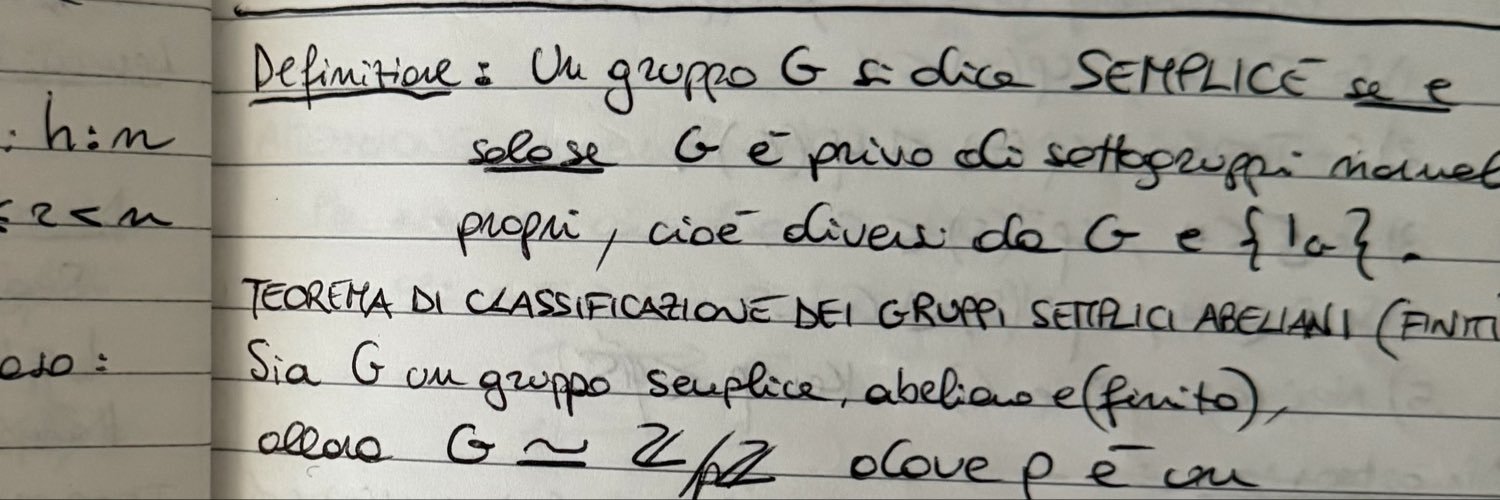 Definizione : Un gruppo G si dice SEMPLICE se e
: h:n
solo se G è privo di sottogruppi
≤ r < n
propri, cioè diversi da G e {1G}.
TEOREMA DI CLASSIFICAZIONE DEI GRUPPI SEMPLICI ABELIANI (FINITI
Sia G un gruppo semplice, abeliano e (finito),
allora G ≃ Z/pZ dove p è un